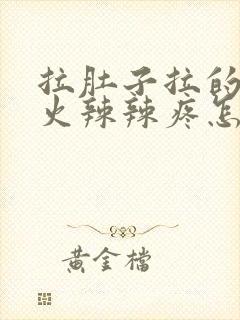 拉肚子拉的
火辣辣疼怎
黄金檔